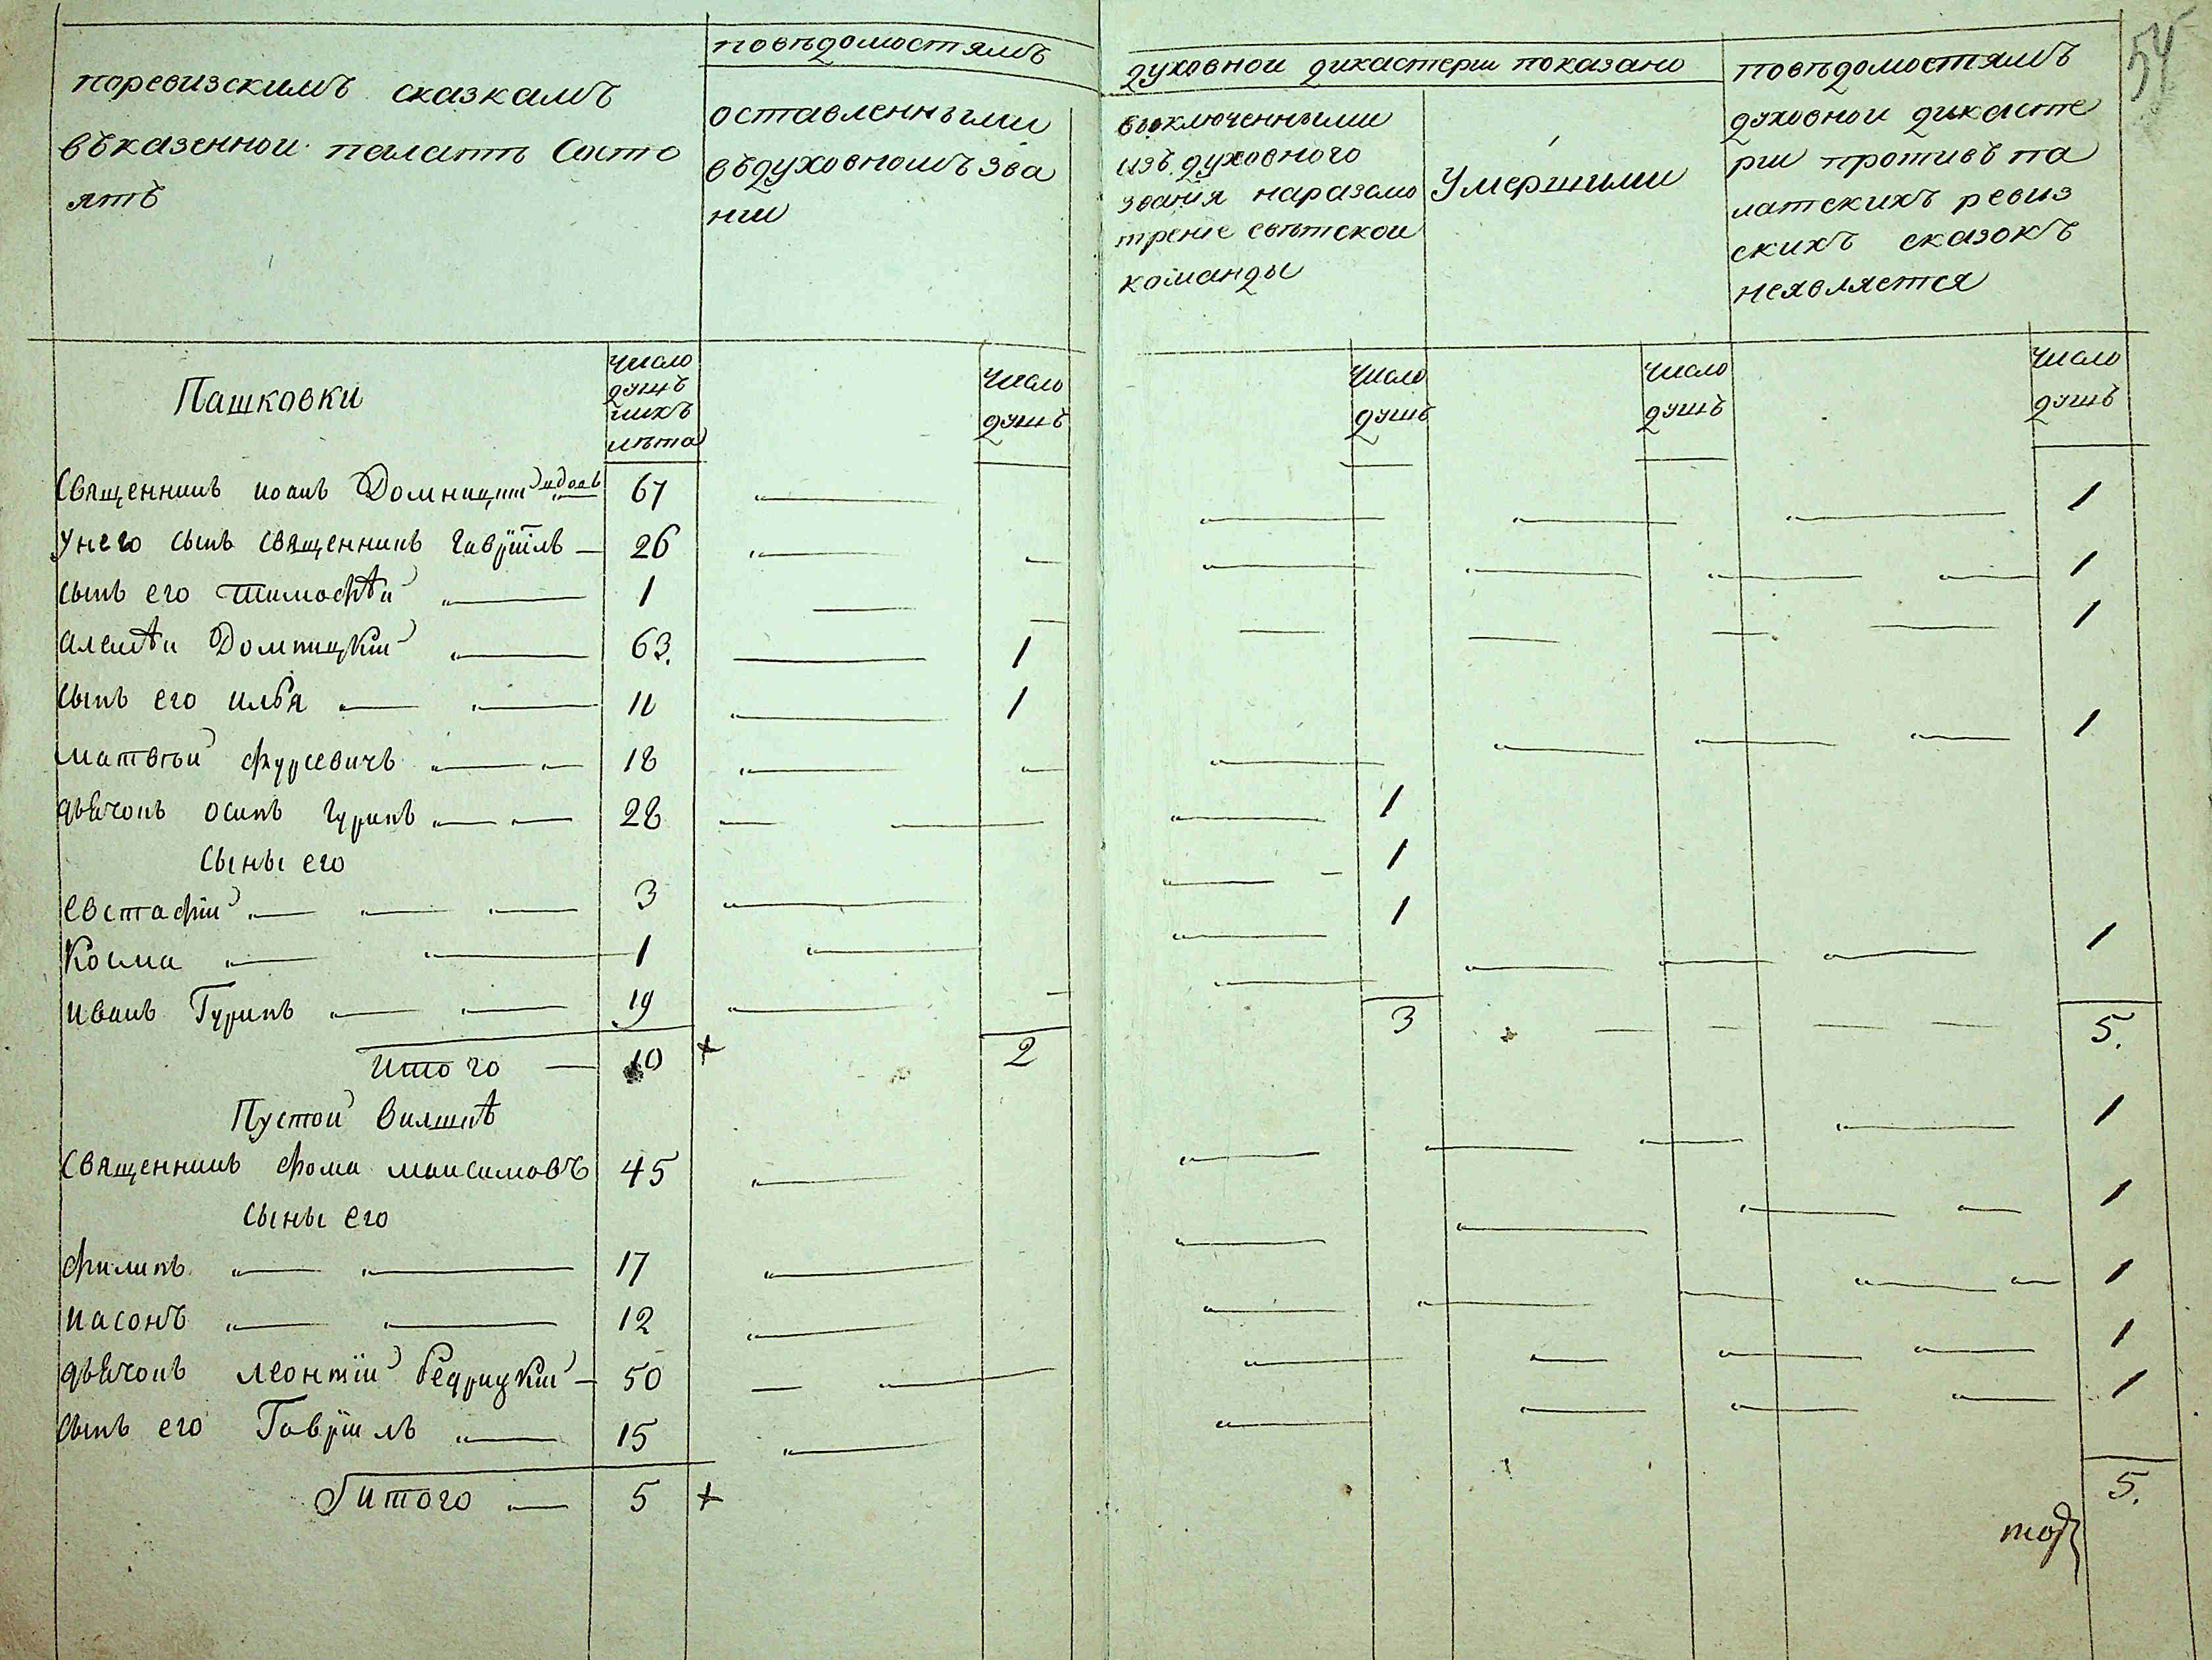 54
поревизскимъ сказкамъ
въказенной палатѣ Состо
ятъ
повѣдомостямъ
оставленными
въдуховномъ зва
нии
духовной дикастерии показано
выключенными
изъ духовного
звания наразсмо
трение свѣтской
команды
Умершими
повѣдомостямъ
духовной дикасте
рии противъ па
латскихъ ревиз
скихъ сказокъ
неявляется
Пашковки
число
душъ
ихъ
лѣта
число
душъ
число
душъ
число
душъ
число
душъ
Священникъ иоанъ 67 1
Унего сынъ священникъ гавріилъ 26 1
сынъ его тимофѣй 1 1
алексѣй Домницкій 63. 1
сынъ его илья 11 1
матвѣй фурсевичъ 18 1
дьячокъ осипъ гуринъ 28 1
Сыны его
евстафій 3 1
Косма 1 1
иванъ Гуринъ 19 1
Итого 10 + 2 3 5.
Пустой Вилшнѣ
Священникъ фома максимовъ 45 1
сыны его
филипъ 17 1
иасонъ 12 1
дьячокъ леонтій бедрицкій 50 1
сынъ его Гавріилъ 15 1
итого 5 + 5.